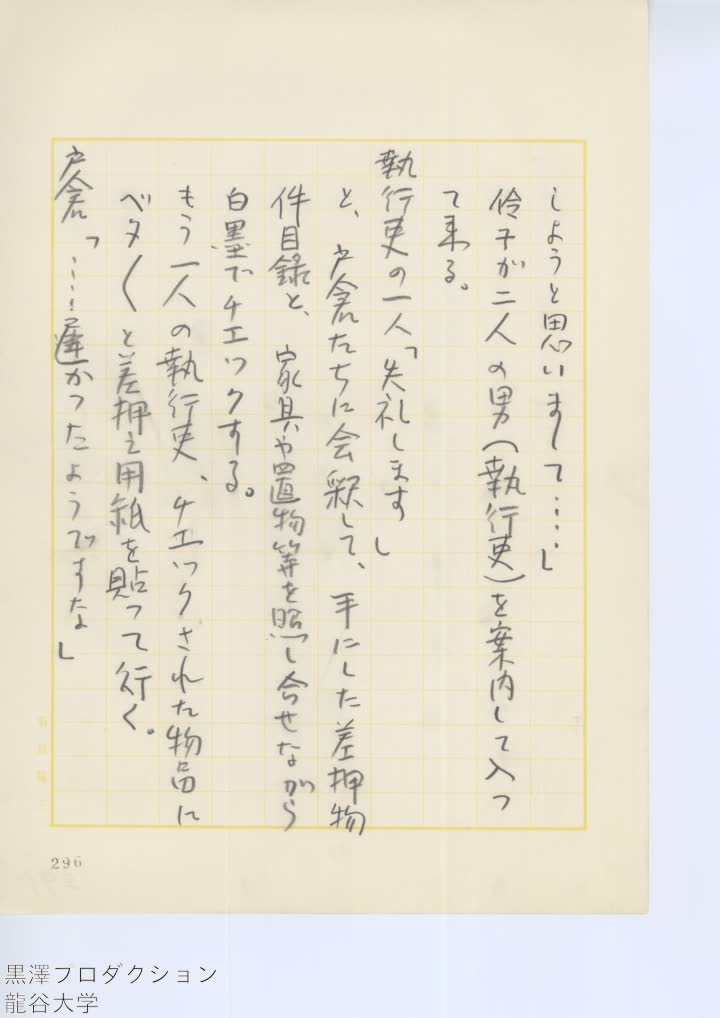 しようと思いまして……」
伶子が二人の男(執行吏)を案内して入っ
て来る。
執行吏の一人「失礼します」
と、戸倉たちに会釈して、手にした差押物
件目録と、家具や置物等を照し合せながら
白墨でチエックする。
もう一人の執行吏、チエックされた物品に
ベタ〱と差押え用紙を貼って行く。
戸倉「……遅かったようですな」
296
黒澤プロダクション
龍谷大学